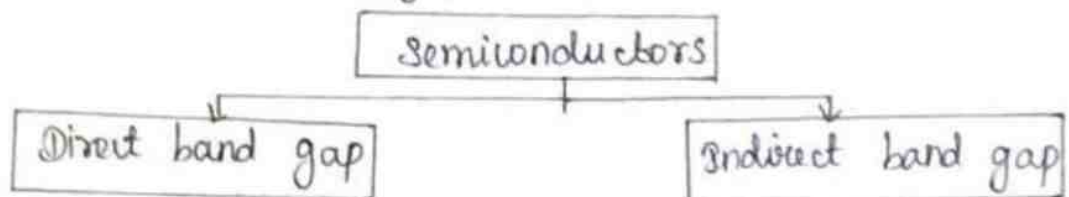 Semiconductors
Direct band gap
Indirect band gap